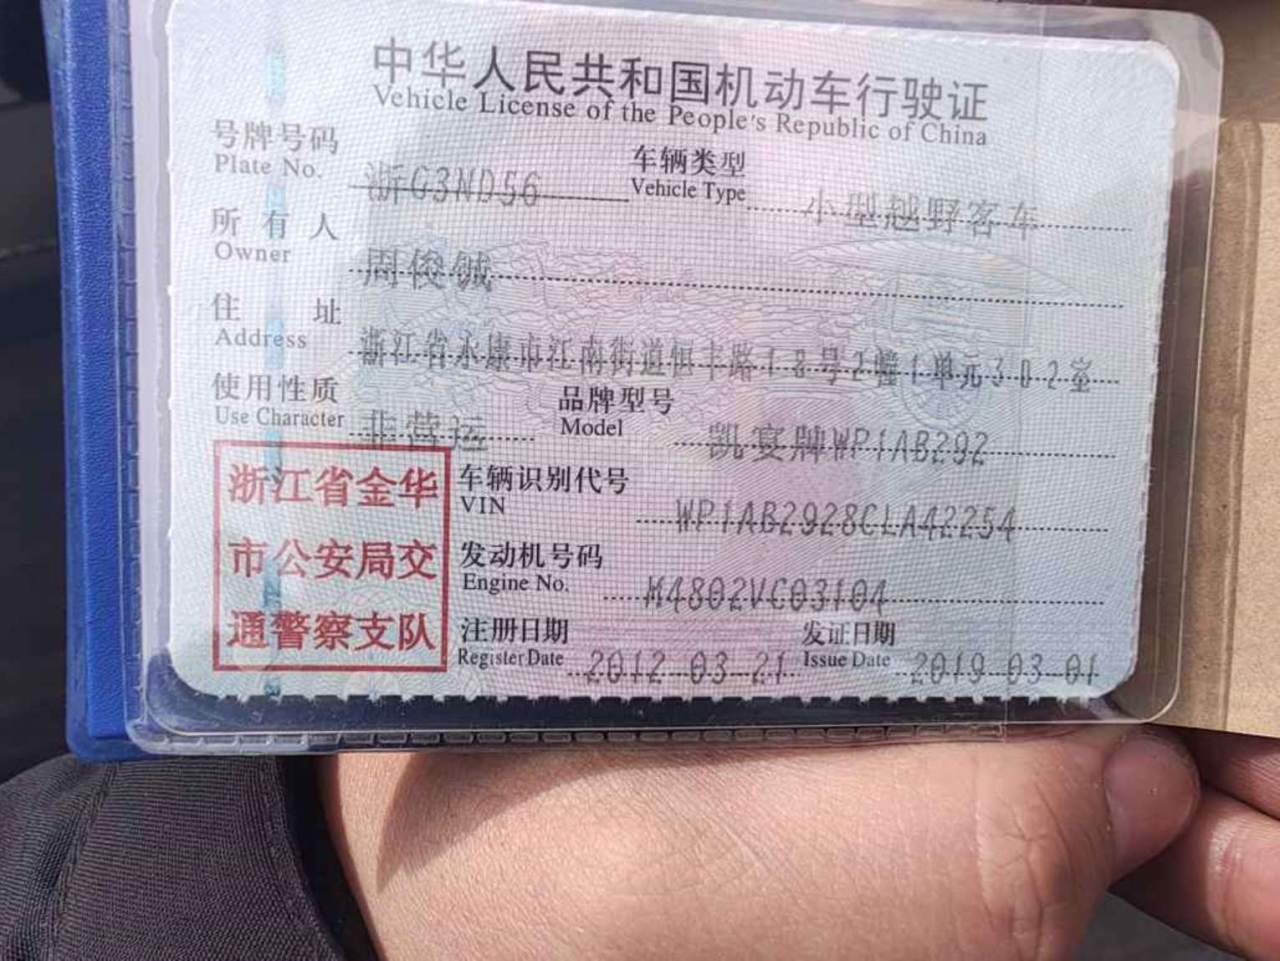 中华人民共和国机动车行驶证
Vehicle License of the People's Republic of China
号牌号码 浙G3ND56 车辆类型 小型越野客车
Plate No. Vehicle Type
所有人 周俊铖
Owner
住址 浙江省永康市江南街道恒丰路18号2幢1单元302室
Address
使用性质 非营运 品牌型号 凯宴牌WP1AB292
Use Character Model
浙江省金华
市公安局交
通警察支队
车辆识别代号 WP1AB2928CLA42254
VIN
发动机号码 M4802VC03104
Engine No.
注册日期 2012-03-21 发证日期 2019-03-01
Register Date Issue Date